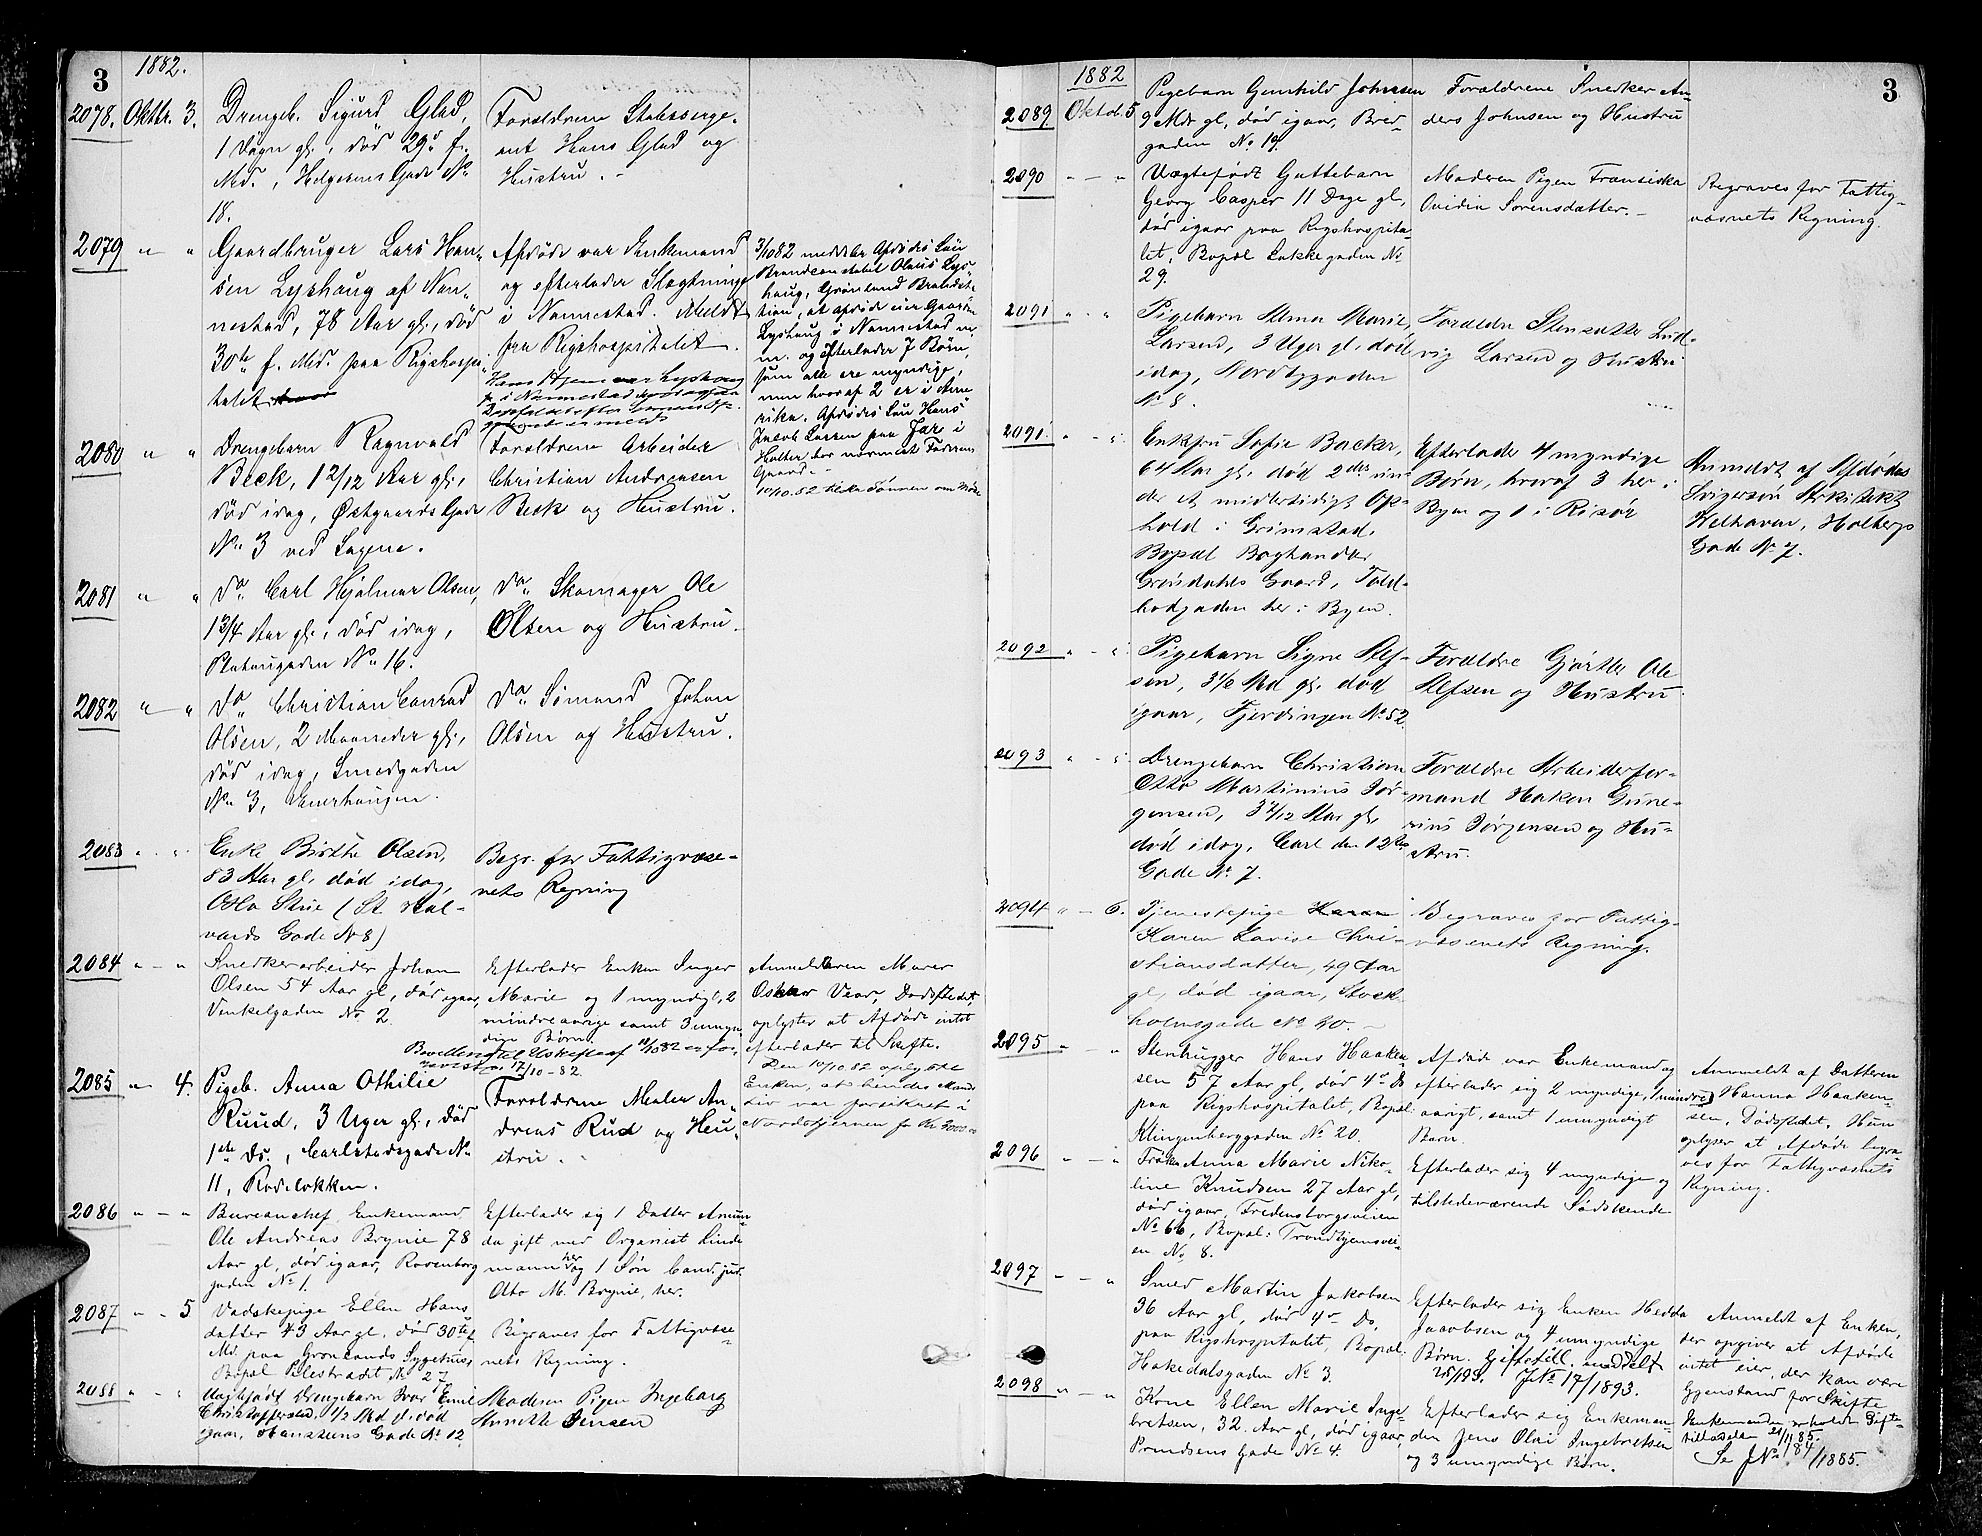 3
1882.
2078. Oktbr. 3. Drengeb. Sigurd Glad,
1 Døgn gl., død 29d f.
Md., Helgesens Gade No
18.
Forældrene Stabssergeant
Hans Glad og
Hustru. -
2079 " " Gaardbruger Lars Han-
sen Lyshaug af Nan-
nestad, 78 Aar gl., død
30te f. Md. paa Rigshospi-
talet
Afdøde var Enkemand
og efterlader Slægtninge
i Nannestad. Meldt
fra Rigshospitalet.
3/10 82 meddeler Afdødes Søn
Brandconstabel Olaus Lys-
haug, Grønland Brandsta-
tion, at afdøde eier Gaarden
Lyshaug i Nannestad
m. og efterlader 7 Børn,
som alle ere myndige,
men hvoraf 2 er i Ame-
rika. Afdødes Søn Hans
Jacob Larsen paa
Holter bor nærmest Faderens
Gaard. -
2080 " " Drengebarn Ragnvald
Beck, 1 2/12 Aar gl.,
død idag, Østgaards Gade
No 3 ved Sagene.
Forældrene Arbeider
Christian Andreasen
Beck og Hustru.
2081 " " Do Carl Hjalmar Olsen,
1 3/4 Aar gl., død idag,
Platougaden No 16.
Do Skomager Ole
Olsen og Hustru.
2082 " " Do Christian Conrad
Olsen, 2 Maaneder gl.,
død idag, Smedgaden
No 3, Enerhaugen.
Do Sømand Johan
Olsen og Hustru.
2083 " " Enke Birthe Olsen,
83 Aar gl. død idag,
Oslo Skue (St. Hal-
vards Gade No 8)
Begr. for Fattigvæse-
nets Regning
2084 " - " Snedkerarbeider Johan
Olsen 54 Aar gl, død igaar,
Vinkelgaden No 2.
Efterlader Enken Inger
Marie og 1 myndigt, 2
mindreaarige samt 3 umyn
dige Børn.
Anmelderen Murer
Oskar Dødsstedet,
oplyster at Afdøde intet
efterlader til Skifte.
Den 10/10 82 oplyste
Enken, at hendes Mands
Liv var forsikret i
Nordstjernen for Kr
2085 " - 4. Pigeb. Anna Othilie
Ruud, 3 Uger gl., død
1ste Ds., Carlstadsgade No
11, Rodeløkken.
Forældrene Maler An-
dreas Rud og Hu-
stru. -
2086 " - " Bureauchef, Enkemand
Ole Andreas Brynie 78
Aar gl, død igaar, Rosenborg
gaden No 1.
Efterlader sig 1 Datter Amun
da gift med Organist Linde
mann her og 1 Søn Cand. jur.
Otto M. Brynie, her.
2087 " - 5 Vadskepige Ellen Hans
datter 43 Aar gl. død 30te f.
Md. paa Grønlands Sygehus,
Bopæl Pilestrædet No 27
Begraves for Fattigvæse-
nets Regning.
2088 " - " Uægtefødt Drengebarn Ivar Emil
Christoffersen, 1/2 Md gl. død
igaar, Hansteens Gade No 12.
Moderen Pigen Ingeborg
Annette Jensen
3
1882
2089 Oktob. 5 Pigebarn Gunhild Johnsen
9 Mdr gl, død igaar, Bred-
gaden No 19.
Forældrene Snedker An-
ders Johnsen og Hustru
2090 " - " Uægtefødt Guttebarn
Georg Casper 11 Dage gl,
død igaar paa Rigshospita-
let, Bopæl Lakkegaden No
29.
Moderen Pigen Fransiska
Ovidia Sørensdatter. -
Begraves for Fattig-
væsnets Regning.
2091 " - " Pigebarn Alma Marie
Larsen, 3 Uger gl. død
idag, Nordbygaden
No 8.
Forældre Stensatte Lud-
vig Larsen og Hustru
2091 " - " Enkefru Sofie Backer,
64 Aar gl. død 2den un-
der et midlertidigt Op-
hold i Grimstad.
Bopæl Boghandler
Grøndahls Gaard, Told-
bodgaden her i Byen.
Efterlader 4 myndige
Børn, hvoraf 3 her i
Byen og 1 i Risør
Anmeldt af Afdødes
Svigersøn Arkitekt
Welhaven, Holbergs
Gade No 7.
2092 " - " Pigebarn Signe Alf-
sen, 3 1/2 Md gl. død
igaar, Fjerdingen No 52
Forældre Gjørtler Ole
Alfsen og Hustru.
2093 " - " Drengebarn Christian
Otto Martinius Jør-
gensen, 3 7/12 Aar gl.
død idag, Carl den 12tes
Gade No 7.
Forældre Arbeiderfor-
mand Haken Gune-
rius Jørgensen og Hu-
stru.
2094 " - 6. Tjenestepige Karen
Karen Lovise Chri-
stiansdatter, 49 Aar
gl, død igaar, Stock-
holmsgade No 20. -
Begraves for Fattig-
væsenets Regning.
2095 " - " Stenhugger Hans Haaken
sen 57 Aar gl, død 4de Ds
paa Rigshospitalet, Bopæl:
Klingenberggaden No 20.
Afdøde var Enkemand og
efterlader sig 2 myndige, 1 mindre
aarigt, samt 1 umyndigt
Barn.
Anmeldt af Datteren
Hanna Haaken-
sen, Dødsstedet, Hun
oplyser at Afdøde begra-
ves for Fattigvæsnets
Regning.
2096 " - " Frøken Anna Marie Niko-
line Knudsen 27 Aar gl,
død igaar, Fredensborgveien
No 66, Bopæl: Trondhjemsvei-
en No 8.
Efterlader sig 4 myndige og
tilstedeværende Sødskende
2097 " - " Smed Martin Jakobsen
36 Aar gl, død 4de Ds.
paa Rigshospitalet, Bopæl:
Hakedalsgaden No 3.
Efterlader sig Enken Hedda
Jacobsen og 4 umyndige
Børn. Giftetill. meddelt
J No 17/1893.
Anmeldt af Enken,
der opgiver at Afdøde
intet eier, der kan være
Gjenstand for Skifte
2098 " - " Kone Ellen Marie Inge-
bretsen, 32 Aar gl, død igaar,
Prindsens Gade No 4.
Efterlader sig Enkeman-
den Jens Olai Ingebretsen
og 3 umyndige Børn.
Enkemanden erholdt Gifte-
tilladelse
Se J No 184/1885.